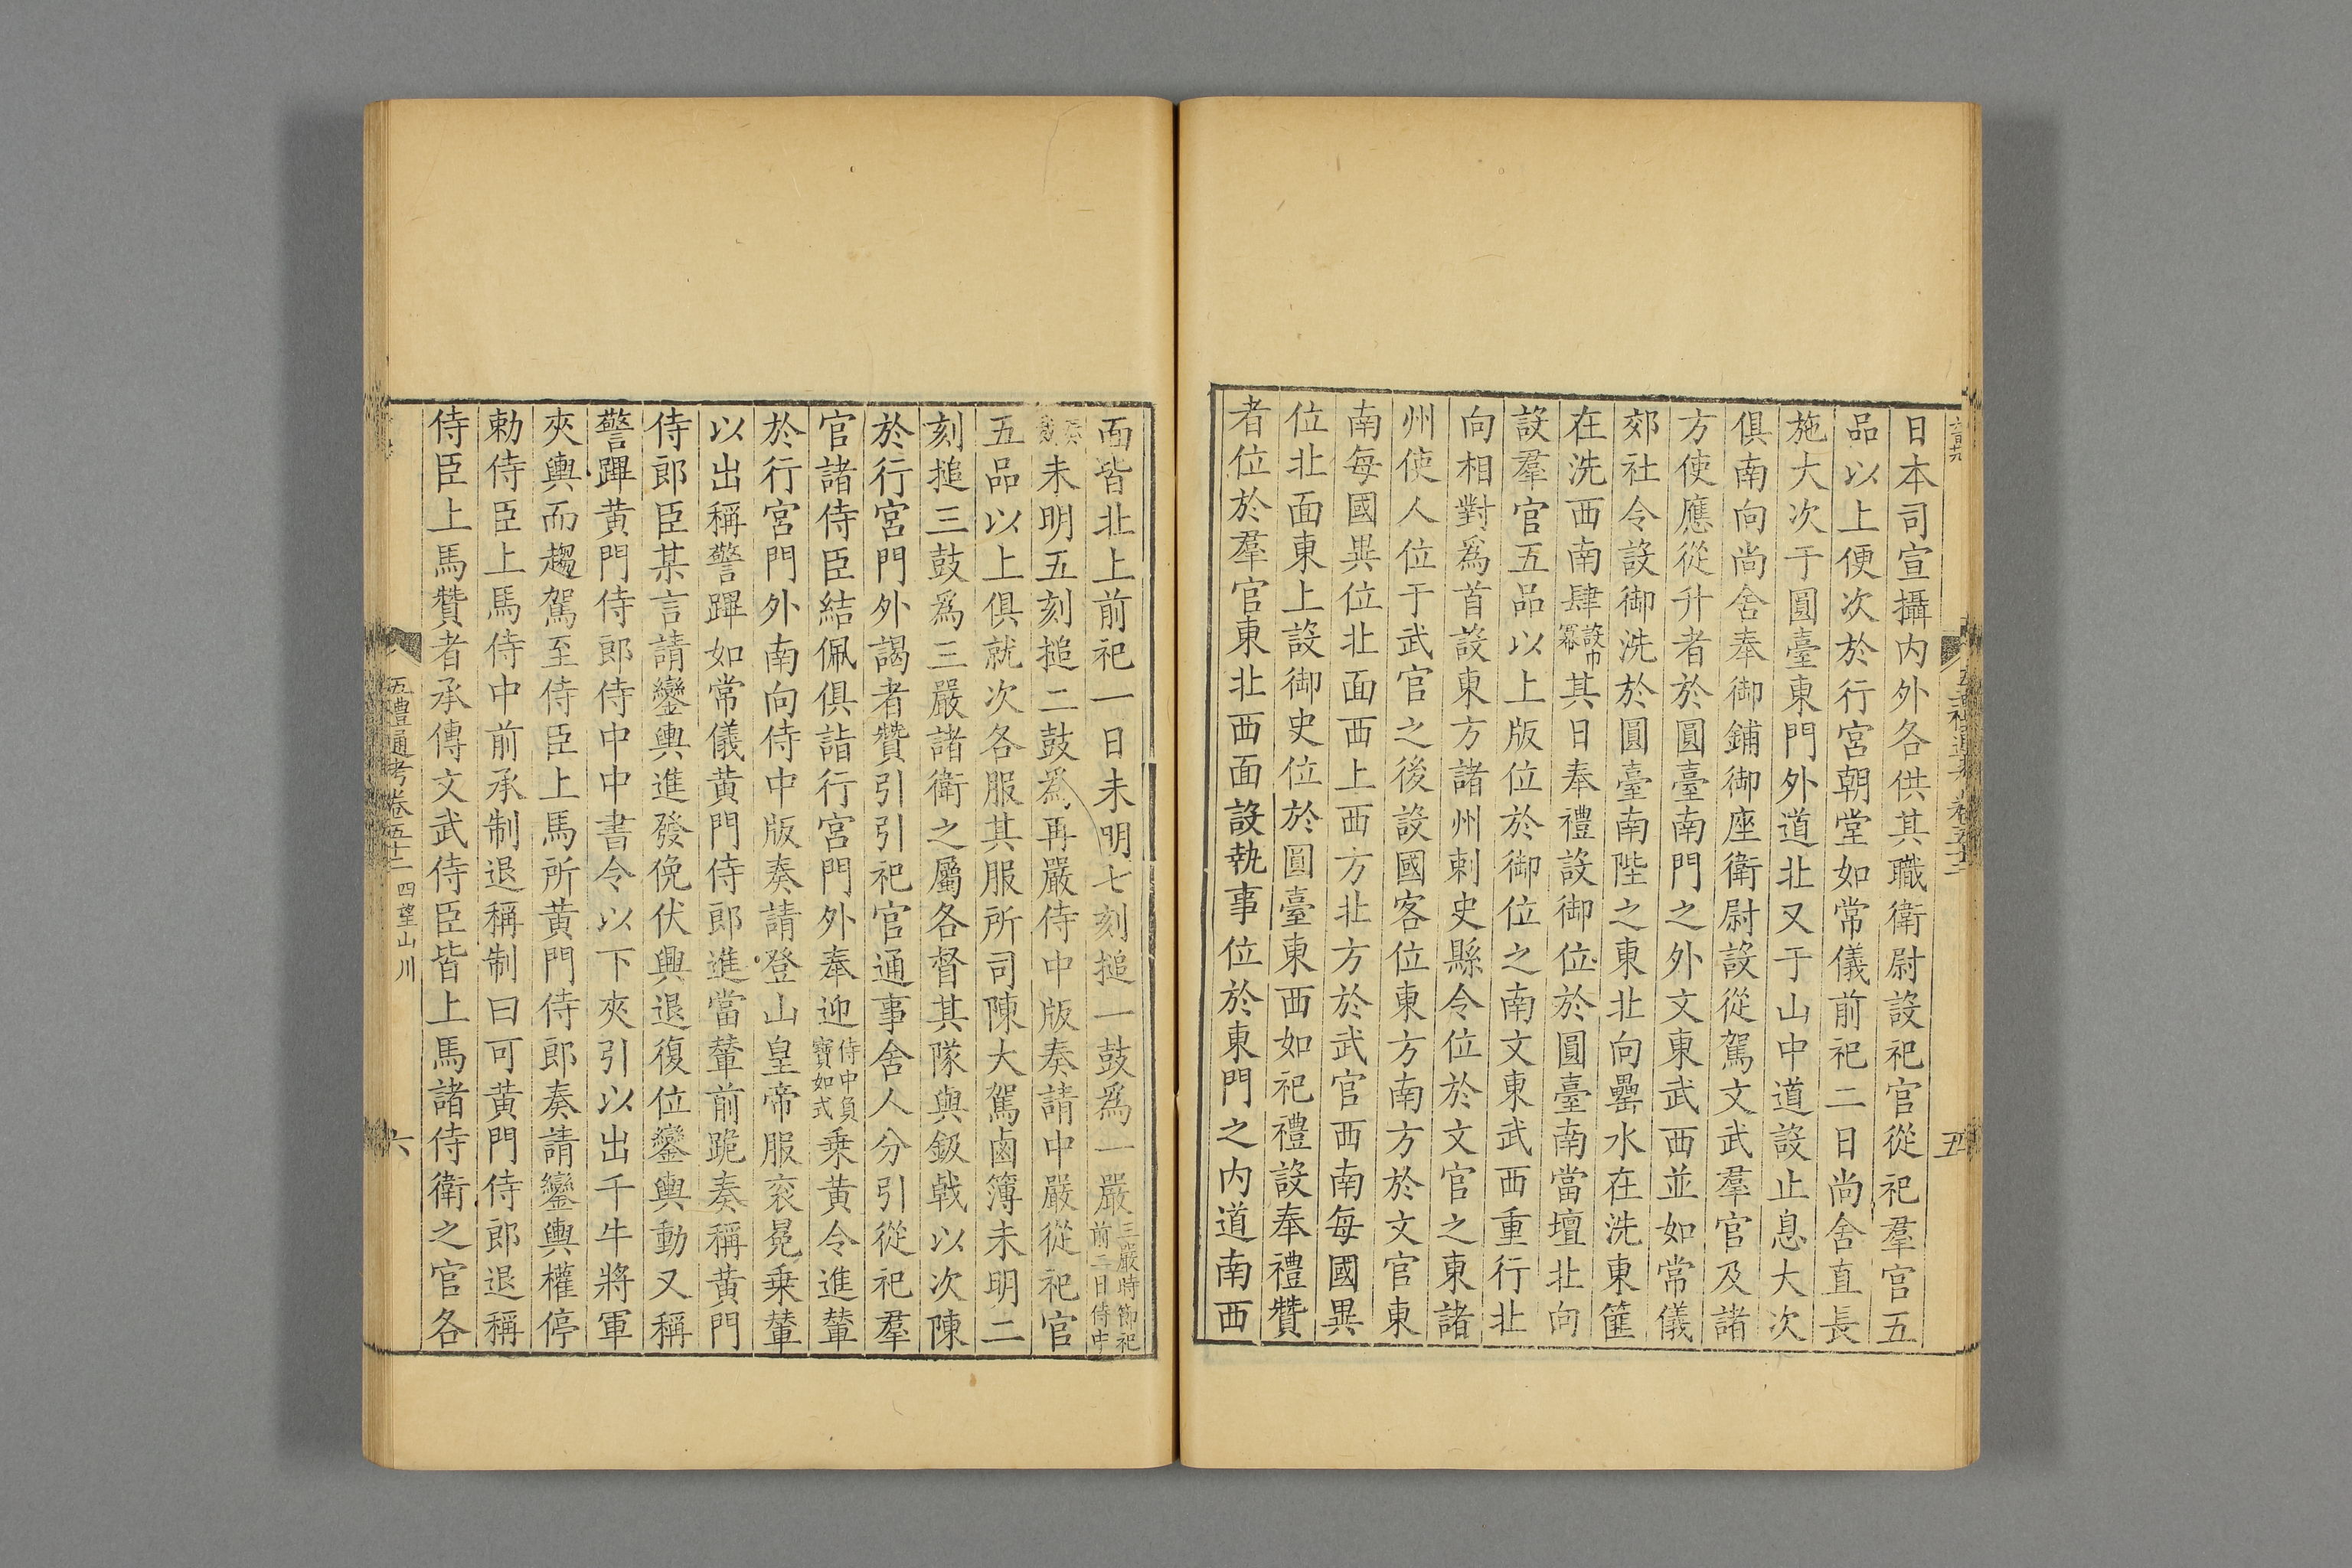 日本司宣攝内外各供其職衛尉設祀官從祀羣官五
品以上便次於行宮朝堂如常儀前祀二日尚舍直長
施大次于圓臺東門外道北又于山中道設止息大次
俱南向尚舍奉御鋪御座衛尉設從駕文武羣官及諸
方使應從升者於圓臺南門之外文東武西並如常儀
郊社令設御洗於圓臺南陛之東北向罍水在洗東篚
在洗西南肆設巾冪其日奉禮設御位於圓臺南當壇北向
設羣官五品以上版位於御位之南文東武西重行北
向相對爲首設東方諸州刺史縣令位於文官之東諸
州使人位于武官之後設國客位東方南方於文官東
南每國異位北面西上西方北方於武官西南每國異
位北面東上設御史位於圓臺東西如祀禮設奉禮贊
者位於羣官東北西面設執事位於東門之内道南西
面皆北上前祀一日未明七刻搥一鼓爲一嚴三嚴時節祀前二日侍中
未明五刻搥二鼓爲再嚴侍中版奏請中嚴從祀官
五品以上俱就次各服其服所司陳大駕鹵簿未明二
刻搥三鼓爲三嚴諸衛之屬各督其隊與鈒戟以次陳
於行宮門外謁者贊引引祀官通事舍人分引從祀羣
官諸侍臣結佩俱詣行宮門外奉迎侍中負寶如式乗黄令進輦
於行宮門外南向侍中版奏請登山皇帝服衮冕乗輦
以出稱警蹕如常儀黄門侍郎進當輦前跪奏稱黄門
侍郎臣某言請鑾輿進發俛伏興退復位鑾輿動又稱
警蹕黄門侍郎侍中中書令以下夾引以出千牛將軍
夾輿而趨駕至侍臣上馬所黄門侍郎奏請鑾輿權停
勅侍臣上馬侍中前承制退稱制曰可黄門侍郎退稱
侍臣上馬贊者承傳文武侍臣皆上馬諸侍衛之官各
五禮通考卷五十二 四望山川
六